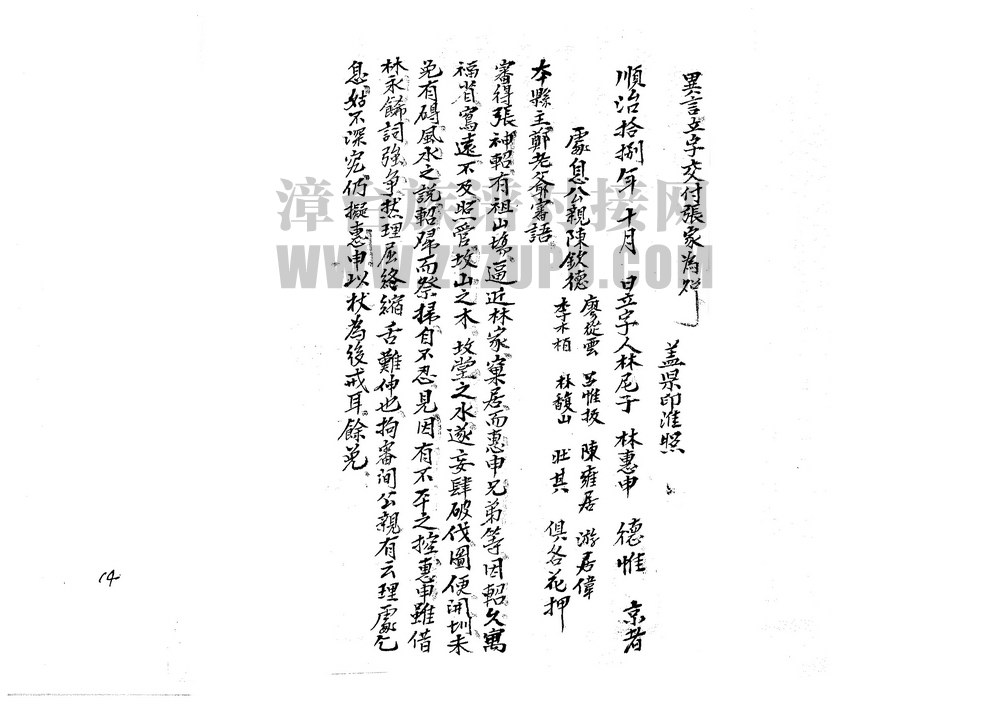 異言立字交付張家為炤
盖県印准照
順治拾捌年 十月 日立字人林尾子 林惠申 德惟 京者
處息公親陳欽德 廖從雲 呂惟扳 陳雍居 游居偉
李木栢 林馥山 壯其 俱各花押
本縣主鄭老爺審語
審得張神軺有祖山墳逼近林家窠居而惠申兄弟等因軺久寓
福省寫遠不及照管坟山之木坟堂之水遂妄肆破伐圖便開圳未
免有碍風水之說軺歸而祭掃自不忍見因有不平之控惠申雖借
林永餙詞強争然理屈終縮舌難伸也拘審间公親有云理處乞
息姑不深究仍擬惠申以杖為後戒耳餘免
漳台族谱对接网
WWW.ZTZUPU.COM
14